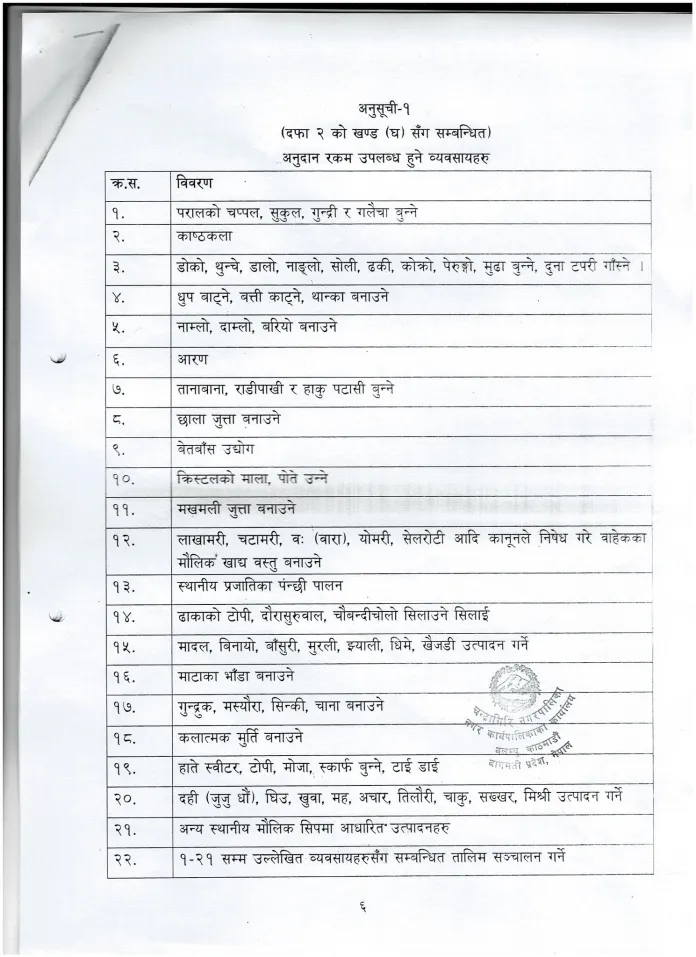 अनुसूची-१
(दफा २ को खण्ड (घ) सँग सम्बन्धित)
अनुदान रकम उपलब्ध हुने व्यवसायहरु
क्र.स. विवरण
१. परालको चप्पल, सुकुल, गुन्द्री र गलैचा बुन्ने
२. काष्ठकला
३. डोको, थुन्चे, डालो, नाङ्लो, सोली, ढकी, कोक्रो, पेरुङ्गो, मुढा बुन्ने, दुना टपरी गाँस्ने ।
४. धुप बाट्ने, बत्ती काट्ने, थान्का बनाउने
५. नाम्लो, दाम्लो, बरियो बनाउने
६. आरण
७. तानाबाना, राडीपाखी र हाकु पटासी बुन्ने
८. छाला जुत्ता बनाउने
९. बेतबाँस उद्योग
१०. क्रिस्टलको माला, पोते उन्ने
११. मखमली जुत्ता बनाउने
१२. लाखामरी, चटामरी, वः (बारा), योमरी, सेलरोटी आदि कानूनले निषेध गरे बाहेकका
मौलिक खाद्य वस्तु बनाउने
१३. स्थानीय प्रजातिका पंन्छी पालन
१४. ढाकाको टोपी, दौरासुरुवाल, चौबन्दीचोलो सिलाउने सिलाई
१५. मादल, बिनायो, बाँसुरी, मुरली, झ्याली, धिमे, खैजडी उत्पादन गर्ने
१६. माटाका भाँडा बनाउने
१७. गुन्द्रुक, मस्यौरा, सिन्की, चाना बनाउने
१८. कलात्मक मुर्ति बनाउने
१९. हाते स्वीटर, टोपी, मोजा, स्कार्फ बुन्ने, टाई डाई
२०. दही (जुजु धौ), घिउ, खुवा, मह, अचार, तिलौरी, चाकु, सख्खर, मिश्री उत्पादन गर्ने
२१. अन्य स्थानीय मौलिक सिपमा आधारित उत्पादनहरु
२२. १-२१ सम्म उल्लेखित व्यवसायहरुसँग सम्बन्धित तालिम सञ्चालन गर्ने
चन्द्रागिरि नगरपालिका
नगर कार्यपालिकाको कार्यालय
बलम्बु, काठमाडौं
बागमती प्रदेश, नेपाल
६